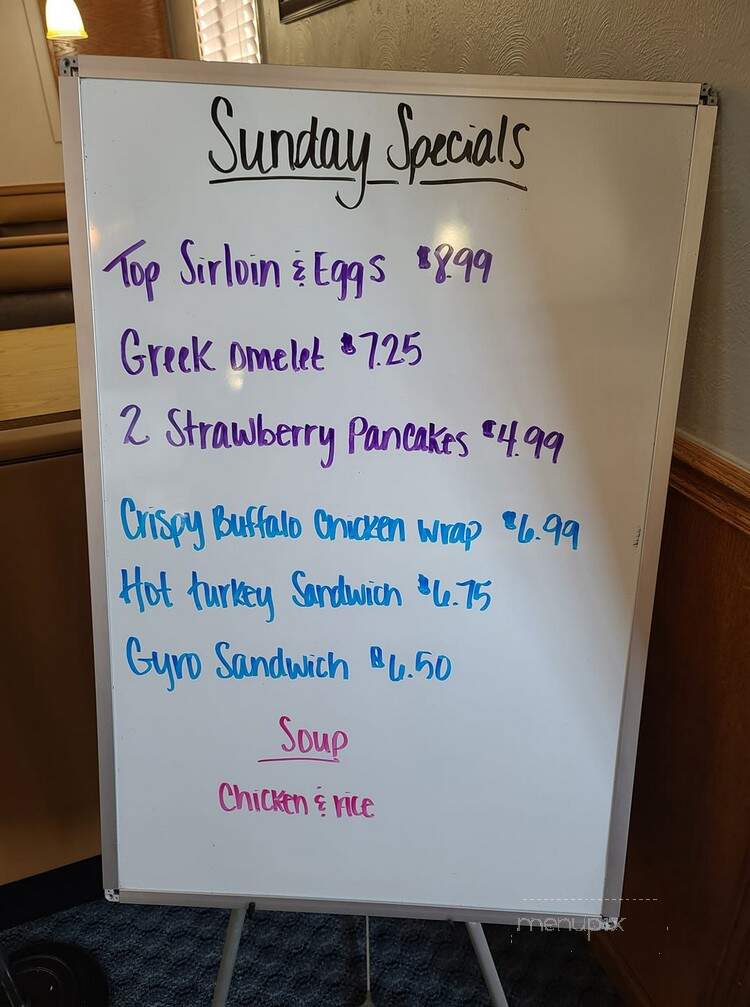 Sunday Specials
Top Sirloin & Eggs $8.99
Greek Omelet $7.25
2 Strawberry Pancakes $4.99
Crispy Buffalo Chicken Wrap $6.99
Hot turkey Sandwich $6.75
Gyro Sandwich $6.50
Soup
Chicken & rice
menupix